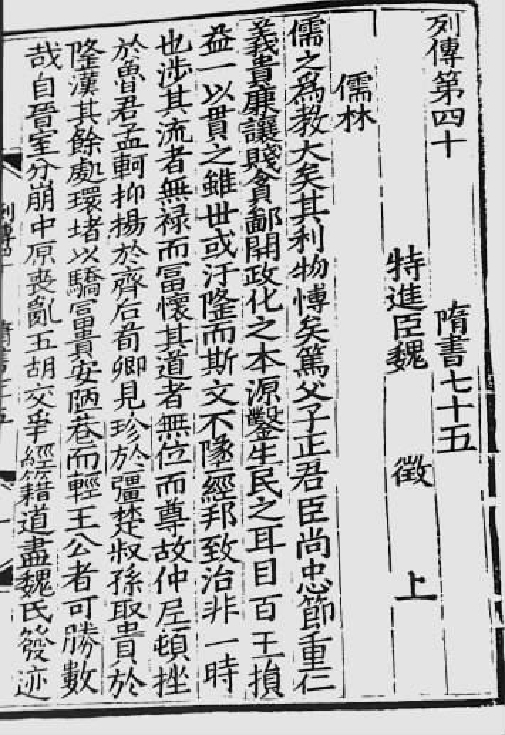 列傳第四十 隋書七十五
特進臣魏 徵 上
儒林
儒之爲教大矣其利物博矣篤父子正君臣尚忠節重仁
義貴廉讓賤貪鄙開政化之本源鑿生民之耳目百王損
益一以貫之雖世或汙隆而斯文不墜經邦致治非一時
也涉其流者無禄而富懷其道者無位而尊故仲尼頓挫
於魯君孟軻抑揚於齊后荀卿見珍於彊楚叔孫取貴於
隆漢其餘處環堵以驕富貴安陋巷而輕王公者可勝數
哉自晉室分崩中原喪亂五胡交爭經籍道盡魏氏發迹